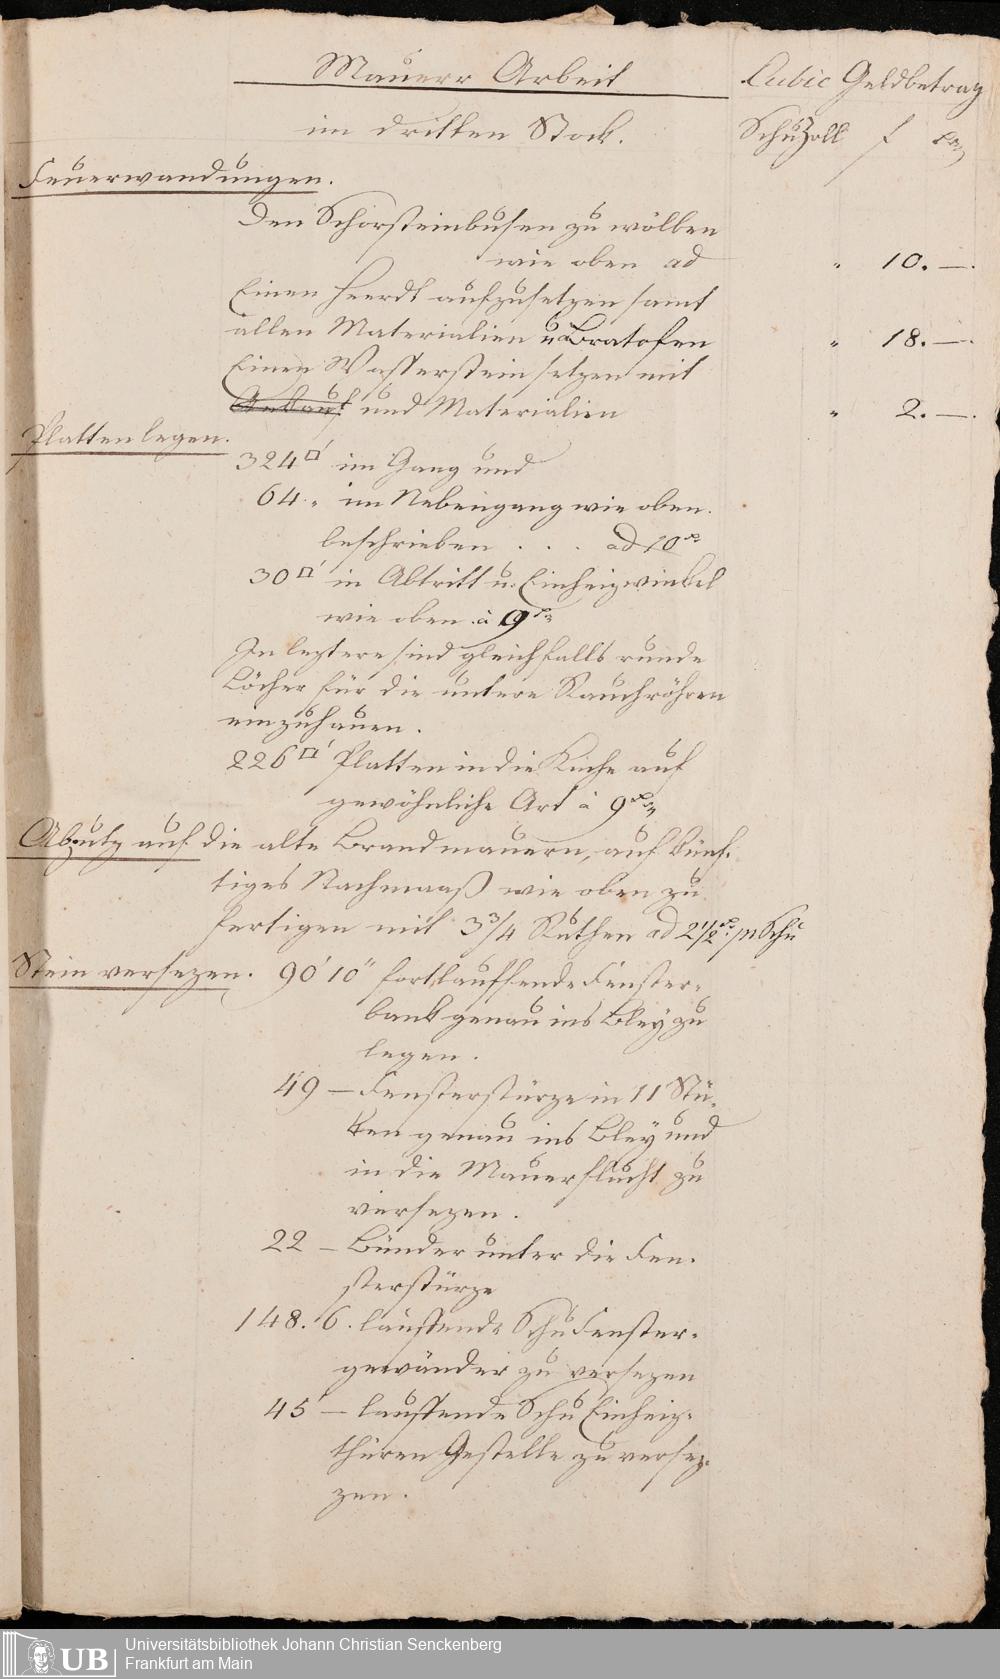 Mauerr Arbeit Cubic Geldbetrag
im dritten Stock. Schu Zoll f xr
Feuerwandungen.
Den Schorsteinbusen zu wölben
wie oben ad " 10. —.
Einen Heerdt aufzusetzen samt
allen Materialien u Bratofen " 18. —.
Einen Wasserstein setzen mit
und Materialien " 2. —.
Platten legen.
324□' im Gang und
64 " im Nebengang wie oben
beschrieben . . . ad 10 xr
30□' in Abtritt u. Einheizwinkel
wie oben à 9 xr
In leztere sind gleichfalls runde
Löcher für die untere Rauchröhren
einzuhauen.
226□' Platten in die Küche auf
gewöhnliche Art à 9 xr
Abputz auf die alte Brandmauern, auf künf-
tiges Nachmaaß wie oben zu
fertigen mit 3 3/4 Ruthen ad 2 1/2 xr. pr Schu
Stein versezen. 90' 10" fortlauffende Fenster-
bank genau ins Bley zu
legen.
49 — Fensterstürze in 11 Stü-
ken genau ins Bley und
in die Mauerflucht zu
versezen.
22 — Bünder unter die Fen-
sterstürze
148. 6. lauffende Schu Fenster-
gewänder zu versezen
45' — lauffende Schu Einheiz-
thüren Gestelle zu versez-
zen.
UB
Universitätsbibliothek Johann Christian Senckenberg
Frankfurt am Main